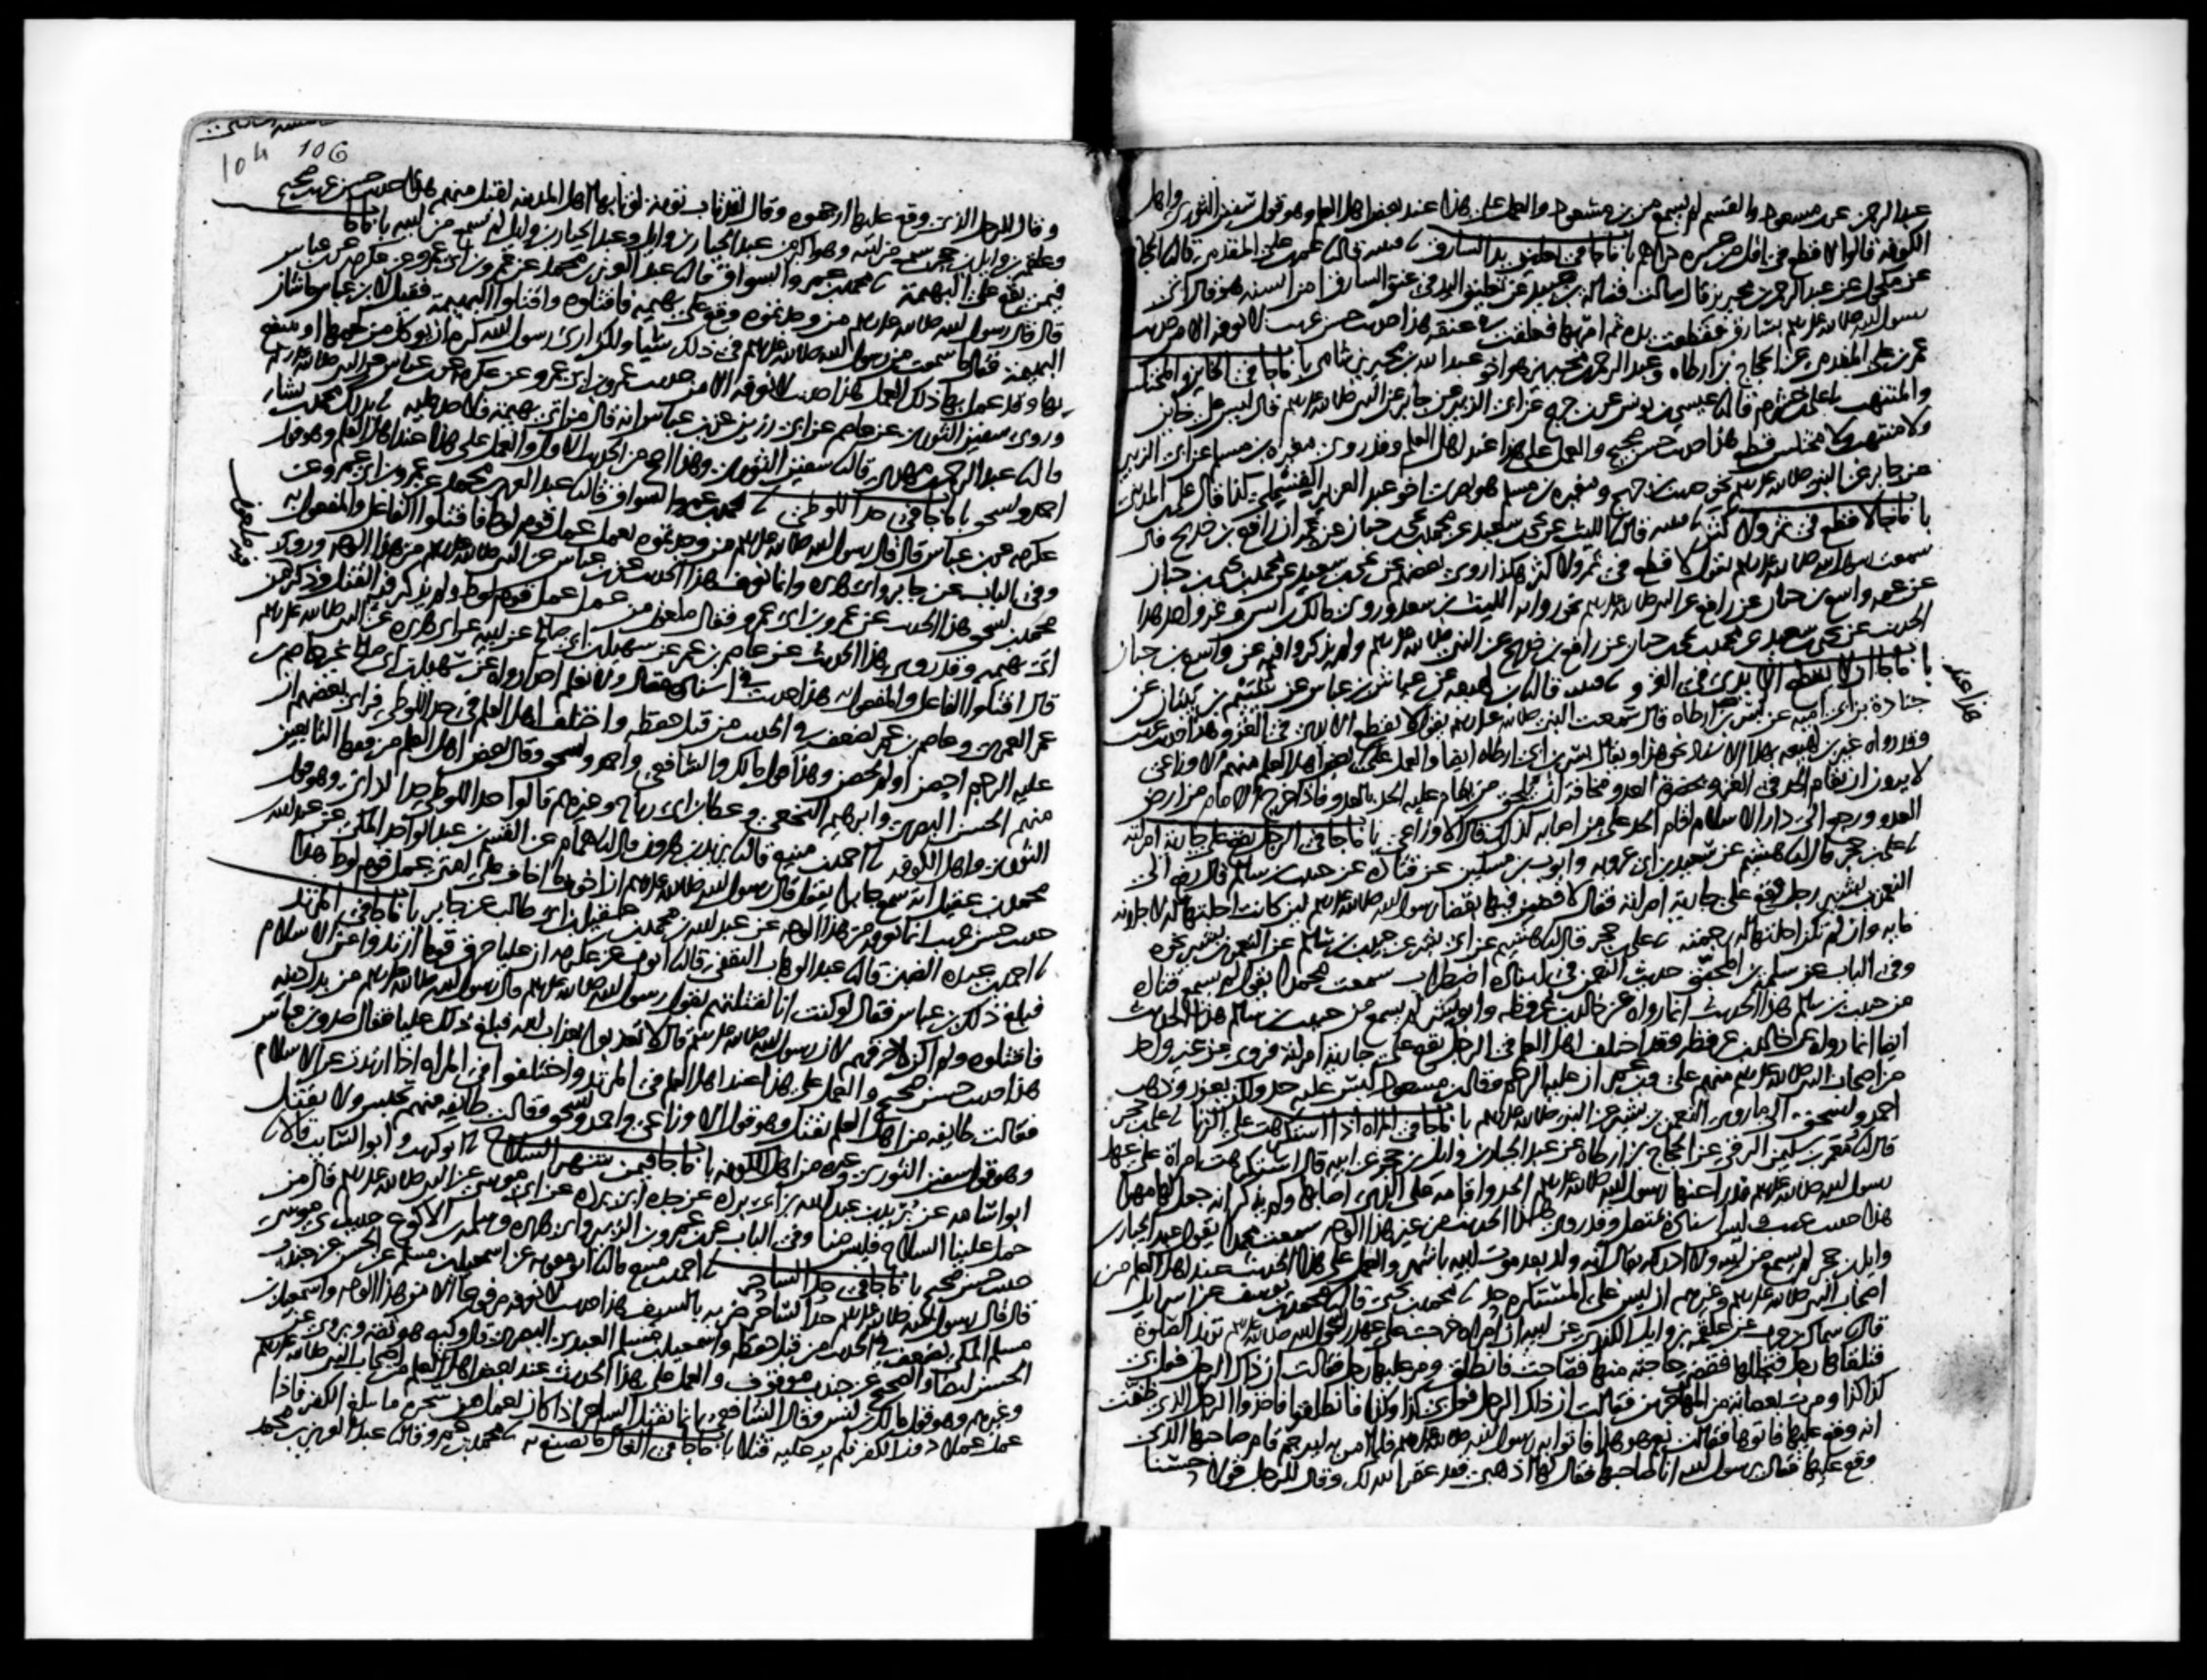 عبد الرحمن عن بن مسعود والقسم لم يسمع من بن مسعود والعمل على هذا عند بعض اهل العلم وهو قول سفين الثوري واهل
الكوفه قالوا لا قطع في اقل من عشره دراهم باب ما جا في تعليق يد السارق قتيبه قال عمر بن على المقدمي قال الحجاج
عن مكحول عن عبد الرحمن بن محيريز قال سالت فضاله بن عبيد عن تعليق اليد في عنق السارق امن السنه هو قال اتى
رسول الله صلى الله عليه وسلم بسارق فقطعت يده ثم امر بها فعلقت في عنقه هذا حديث حسن غريب لا نعرفه الا من حديث
عمر بن على المقدمي عن الحجاج بن ارطاه وعبد الرحمن بن محيريز هو اخو عبد الله بن محيريز شامي باب ما جا في الخاين والمختلس
والمنتهب على بن خشرم قال عيسى بن يونس عن بن جريج عن ابى الزبير عن جابر عن النبي صلى الله عليه وسلم قال ليس على خاين
ولا منتهب ولا مختلس قطع هذا حديث حسن صحيح والعمل على هذا عند اهل العلم وقد روى مغيره بن مسلم عن ابى الزبير
عن جابر عن النبي صلى الله عليه وسلم نحو حديث بن جريج ومغيره بن مسلم هو بصرى اخو عبد العزيز القسملي كذا قال على بن المدينى
باب ما جا لا قطع في ثمر ولا كثر قتيبه قال الليث عن يحيى بن سعيد عن محمد بن يحيى بن حبان عن عمه ان رافع بن خديج قال
سمعت رسول الله صلى الله عليه وسلم يقول لا قطع في ثمر ولا كثر هكذا روى بعضهم عن يحيى بن سعيد عن محمد بن يحيى بن حبان
عن عمه واسع بن حبان عن رافع عن النبي صلى الله عليه وسلم نحو رواية الليث بن سعد وروى مالك بن انس وغير واحد هذا
الحديث عن يحيى بن سعيد عن محمد بن يحيى بن حبان عن رافع بن خديج عن النبي صلى الله عليه وسلم ولم يذكروا فيه عن واسع بن حبان
باب ما جا ان لا يقطع الايدى في الغزو قتيبه قال بن لهيعه عن عياش بن عباس عن شييم بن بيتان عن
جنادة بن ابى اميه عن بسر بن ارطاه قال سمعت النبي صلى الله عليه وسلم يقول لا يقطع الايدى في الغزو هذا حديث غريب
وقد رواه غير بن لهيعه بهذا الاسناد نحو هذا ويقال بسر بن ابى ارطاه ايضا والعمل على هذا عند بعض اهل العلم منهم الاوزاعى
لا يرون ان يقام الحد في الغزو بحضرة العدو مخافة ان يلحق من يقام عليه الحد بالعدو فاذا خرج الامام من ارض
العدو ورجع الى دار الاسلام اقام الحد على من اصابه كذلك قال الاوزاعى باب ما جا في الرجل يقع على جارية امراته
على بن حجر قال هشيم عن سعيد بن ابى عروبه وايوب بن مسكين عن قتاده عن حبيب بن سالم قال رفع الى
النعمن بن بشير رجل وقع على جارية امراته فقال لاقضين فيها بقضا رسول الله صلى الله عليه وسلم لين كانت احلتها له لاجلدنه
مايه وان لم تكن احلتها له رجمته على بن حجر قال هشيم عن ابى بشر عن حبيب بن سالم عن النعمن بن بشير نحوه
وفى الباب عن سلمة بن المحبق حديث النعمن في اسناده اضطراب سمعت محمدا يقول لم يسمع قتاده
من حبيب بن سالم هذا الحديث انما رواه عن خالد بن عرفطه وابو بشر لم يسمع من حبيب بن سالم هذا الحديث
ايضا انما رواه عن خالد بن عرفطه وقد اختلف اهل العلم في الرجل يقع على جارية امراته فروى عن غير واحد
من اصحاب النبي صلى الله عليه وسلم منهم على وبن عمر ان عليه الرجم وقال بن مسعود ليس عليه حد ولكن يعزر وذهب
احمد واسحق الى ما روى النعمن بن بشير عن النبي صلى الله عليه وسلم باب ما جا في المراه اذا استكرهت على الزنا على بن حجر
قال معمر بن سليمن الرقى عن الحجاج بن ارطاه عن عبد الجبار بن وايل بن حجر عن ابيه قال استكرهت امراة على عهد
رسول الله صلى الله عليه وسلم فدرا عنها رسول الله صلى الله عليه وسلم الحد واقامه على الذى اصابها ولم يذكر انه جعل لها مهرا
هذا حديث غريب وليس اسناده بمتصل وقد روى هذا الحديث من غير هذا الوجه سمعت محمدا يقول عبد الجبار بن
وايل بن حجر لم يسمع من ابيه ولا ادركه يقال انه ولد بعد موت ابيه باشهر والعمل على هذا الحديث عند اهل العلم من
اصحاب النبي صلى الله عليه وسلم وغيرهم ان ليس على المستكره حد محمد بن يحيى قال محمد بن يوسف عن اسرايل
قال سماك بن حرب عن علقمة بن وايل الكندى عن ابيه ان امراه خرجت على عهد رسول الله صلى الله عليه وسلم تريد الصلوة
فتلقاها رجل فتجللها فقضى حاجته منها فصاحت فانطلق ومر عليها رجل فقالت ان ذاك الرجل فعل بى
كذا وكذا ومرت بعصابة من المهاجرين فقالت ان ذلك الرجل فعل بى كذا وكذا فانطلقوا فاخذوا الرجل الذى ظنت
انه وقع عليها فاتوها فقالت نعم هو هذا فاتوا به رسول الله صلى الله عليه وسلم فلما امر به ليرجم قام صاحبها الذى
وقع عليها فقال يرسول الله انا صاحبها فقال لها اذهبى فقد غفر الله لك وقال للرجل قولا حسنا
106
وقال للرجل الذى وقع عليها ارجموه وقال لقد تاب توبة لو تابها اهل المدينه لقبل منهم هذا حديث حسن غريب صحيح
وعلقمه بن وايل بن حجر سمع من ابيه وهو اكبر من عبد الجبار بن وايل وعبد الجبار بن وايل لم يسمع من ابيه باب ما جا
فيمن يقع على البهيمة محمد بن عمرو السواق قال عبد العزيز بن محمد عن عمرو بن ابى عمرو عن عكرمه عن بن عباس
قال قال رسول الله صلى الله عليه وسلم من وجدتموه وقع على بهيمه فاقتلوه واقتلوا البهيمة فقيل لابن عباس ما شان
البهيمة فقال ما سمعت من رسول الله صلى الله عليه وسلم في ذلك شيا ولكن ارى رسول الله كره ان يوكل من لحمها او ينتفع
بها وقد عمل بها ذلك العمل هذا حديث لا نعرفه الا من حديث عمرو بن ابى عمرو عن عكرمه عن بن عباس عن النبي صلى الله عليه وسلم
وروى سفين الثورى عن عاصم عن ابى رزين عن بن عباس انه قال من اتى بهيمة فلا حد عليه بذلك محمد بن بشار
قال عبد الرحمن بن مهدى قال سفين الثورى وهذا اصح من الحديث الاول والعمل على هذا عند اهل العلم وهو قول
احمد واسحق باب ما جا في حد اللوطى محمد بن عمرو السواق قال عبد العزيز بن محمد عن عمرو بن ابى عمرو عن
عكرمه عن بن عباس قال قال رسول الله صلى الله عليه وسلم من وجدتموه يعمل عمل قوم لوط فاقتلوا الفاعل والمفعول به
وفى الباب عن جابر وابى هريره وانما نعرف هذا الحديث عن بن عباس عن النبي صلى الله عليه وسلم من هذا الوجه وروى
محمد بن اسحق هذا الحديث عن عمرو بن ابى عمرو فقال ملعون من عمل عمل قوم لوط ولم يذكر فيه القتل وذكر من
اتى بهيمه وقد روى هذا الحديث عن عاصم بن عمر عن سهيل بن ابى صالح عن ابيه عن ابى هريره عن النبي صلى الله عليه وسلم
قال اقتلوا الفاعل والمفعول به هذا حديث في اسناده مقال ولا نعلم احدا رواه عن سهيل بن ابى صالح غير عاصم بن
عمر العمرى وعاصم بن عمر يضعف في الحديث من قبل حفظه واختلف اهل العلم في حد اللوطى فراى بعضهم ان
عليه الرجم احصن او لم يحصن وهذا قول مالك والشافعى واحمد واسحق وقال بعض اهل العلم من فقها التابعين
منهم الحسن البصرى وابرهيم النخعى وعطا بن ابى رباح وغيرهم قالوا حد اللوطى حد الزانى وهو قول
الثورى واهل الكوفه احمد بن منيع قال يزيد بن هرون قال همام عن القسم بن عبد الواحد المكى عن عبد الله بن
محمد بن عقيل انه سمع جابرا يقول قال رسول الله صلى الله عليه وسلم ان اخوف ما اخاف على امتى عمل قوم لوط هذا
حديث حسن غريب انما نعرفه من هذا الوجه عن عبد الله بن محمد بن عقيل بن ابى طالب عن جابر باب ما جا في المرتد
احمد بن عبده الضبى قال عبد الوهاب الثقفى قال ايوب عن عكرمه ان عليا حرق قوما ارتدوا عن الاسلام
فبلغ ذلك بن عباس فقال لو كنت انا لقتلتهم بقول رسول الله صلى الله عليه وسلم قال رسول الله صلى الله عليه وسلم من بدل دينه
فاقتلوه ولم اكن لاحرقهم لان رسول الله صلى الله عليه وسلم قال لا تعذبوا بعذاب الله فبلغ ذلك عليا فقال صدق بن عباس
هذا حديث حسن صحيح والعمل على هذا عند اهل العلم في المرتد واختلفوا في المراه اذا ارتدت عن الاسلام
فقالت طايفه من اهل العلم تقتل وهو قول الاوزاعى واحمد واسحق وقالت طايفه منهم تحبس ولا تقتل
وهو قول سفين الثورى وغيره من اهل الكوفه باب ما جا فيمن شهر السلاح ابو كريب وابو السايب قالا
ابو اسامه عن بريد بن عبد الله بن ابى برده عن جده ابى برده عن ابى موسى عن النبي صلى الله عليه وسلم قال من
حمل علينا السلاح فليس منا وفى الباب عن بن عمر وبن الزبير وابى هريره وسلمه بن الاكوع حديث ابى موسى
حديث حسن صحيح باب ما جا في حد الساحر احمد بن منيع قال ابو معويه عن اسمعيل بن مسلم عن الحسن عن جندب
قال قال رسول الله صلى الله عليه وسلم حد الساحر ضربه بالسيف هذا حديث لا نعرفه مرفوعا الا من هذا الوجه واسمعيل بن
مسلم المكى يضعف في الحديث من قبل حفظه واسمعيل بن مسلم العبدى البصرى قال وكيع هو ثقه ويروى عن
الحسن ايضا والصحيح عن جندب موقوف والعمل على هذا الحديث عند بعض اهل العلم من اصحاب النبي صلى الله عليه وسلم
وغيرهم وهو قول مالك بن انس وقال الشافعى انما يقتل الساحر اذا كان يعمل من سحره ما يبلغ الكفر فاذا
عمل عملا دون الكفر فلم ير عليه قتلا باب ما جا في الغال ما يصنع به محمد بن عمرو قال عبد العزيز بن محمد